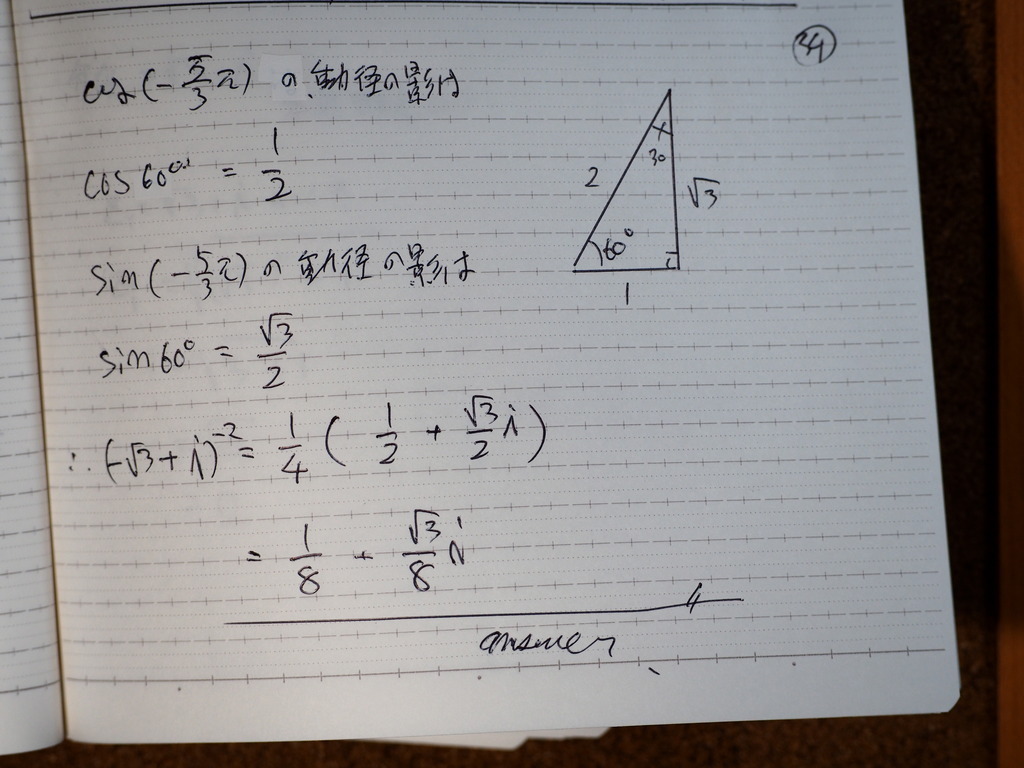 34
cos(-5/3π) の動径の影は
cos 60° = 1/2
sin(-5/3π) の動径の影は
sin 60° = √3/2
∴ (-√3+i)^-2 = 1/4 ( 1/2 + √3/2 i )
= 1/8 + √3/8 i
answer
×
30
2
√3
60°
1